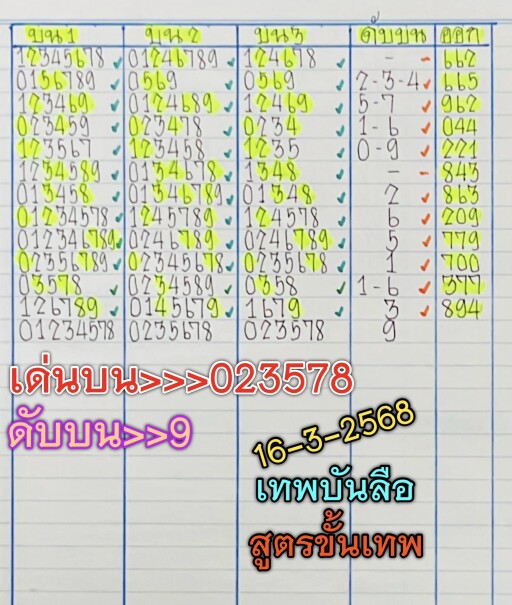 บน1 บน2 บน3 ดับบน ออก
12345678 ✓ 01246789 ✓ 124678 ✓ - - 662
0156789 ✓ 0569 ✓ 0569 ✓ 2-3-4 ✓ 665
123469 ✓ 0124689 ✓ 12469 ✓ 5-7 ✓ 962
023459 ✓ 023478 ✓ 0234 ✓ 1-6 ✓ 044
123567 ✓ 123458 ✓ 1235 ✓ 0-9 ✓ 221
1234589 ✓ 0134678 ✓ 1348 ✓ - - 843
013458 ✓ 01346789 ✓ 01348 ✓ 2 ✓ 863
01234578 ✓ 1245789 ✓ 124578 ✓ 6 ✓ 209
01234678​9 ✓ 0246789 ✓ 0246789 ✓ 5 ✓ 779
02356789 ✓ 02345678 ✓ 0235678 ✓ 1 ✓ 700
03578 ✓ 0234589 ✓ 0358 ✓ 1-6 ✓ 377
126789 ✓ 0145679 ✓ 1679 ✓ 3 ✓ 894
01234578 0235678 023578 9
เด่นบน>>>023578
ดับบน>>9
16-3-2568
เทพบันลือ
สูตรขั้นเทพ